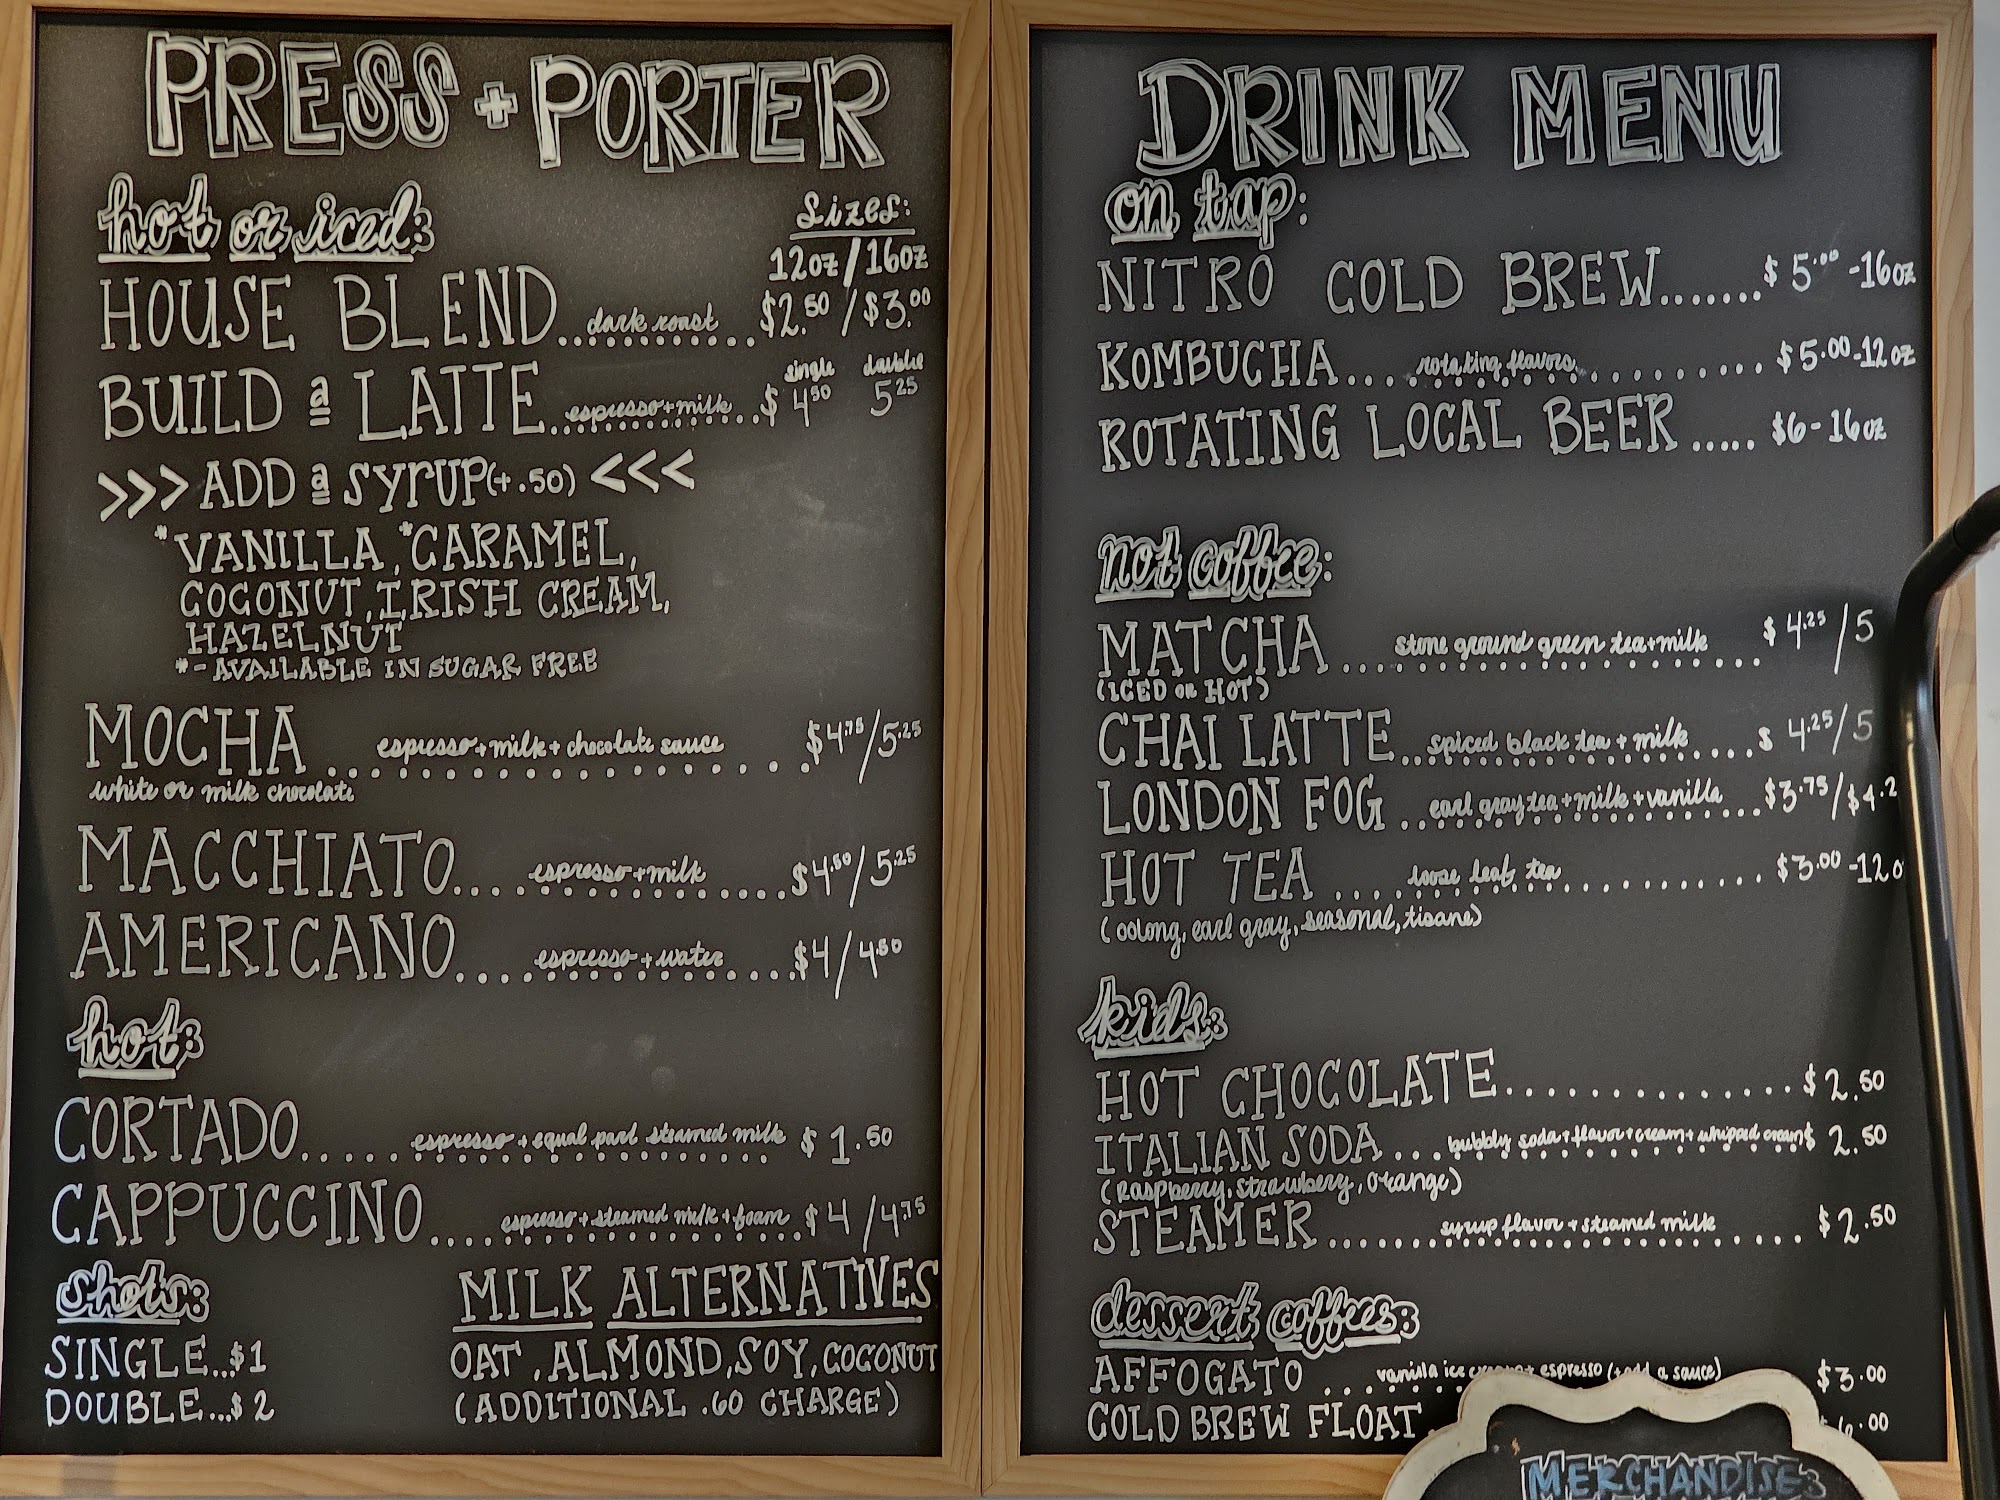 PRESS + PORTER
hot or iced:
sizes:
12oz/16oz
HOUSE BLEND...dark roast...$2.50/$3.00
single double
BUILD a LATTE...espresso+milk..$4.50 5.25
>>> ADD a SYRUP(+.50) <<<
*VANILLA, *CARAMEL,
COCONUT, IRISH CREAM,
HAZELNUT
*- AVAILABLE IN SUGAR FREE
MOCHA...espresso+milk+chocolate sauce...$4.75/5.25
white or milk chocolate
MACCHIATO....espresso+milk....$4.50/5.25
AMERICANO....espresso+water....$4/4.50
hot:
CORTADO.....espresso+equal part steamed milk $1.50
CAPPUCCINO....espresso+steamed milk+foam $4/4.75
shots:
SINGLE...$1
DOUBLE...$2
MILK ALTERNATIVES
OAT, ALMOND, SOY, COCONUT
(ADDITIONAL .60 CHARGE)
DRINK MENU
on tap:
NITRO COLD BREW.......$5.00-16oz
KOMBUCHA....rotating flavors..........$5.00-12oz
ROTATING LOCAL BEER.....$6-16oz
not coffee:
MATCHA....stone ground green tea+milk $4.25/5
(ICED or HOT)
CHAI LATTE...spiced black tea + milk....$4.25/5
LONDON FOG...earl gray tea+milk+vanilla...$3.75/$4.2
HOT TEA....loose leaf tea..........$3.00-12o
(oolong, earl gray, seasonal, tisane)
kids:
HOT CHOCOLATE..............$2.50
ITALIAN SODA...bubbly soda+flavor+cream+whipped cream $2.50
(raspberry, strawberry, orange)
STEAMER....syrup flavor + steamed milk....$2.50
dessert coffees:
AFFOGATO...vanilla ice cream+ espresso (+add a sauce) $3.00
COLD BREW FLOAT. $6.00
MERCHANDISE: